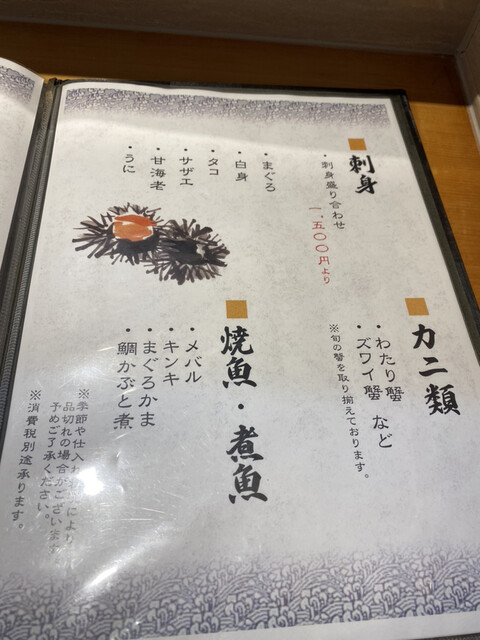 刺身
・刺身盛り合わせ
一、五〇〇円より
・まぐろ
・白身
・タコ
・サザエ
・甘海老
・うに
カニ類
・わたり蟹
・ズワイ蟹 など
※旬の蟹を取り揃えております。
焼魚・煮魚
・メバル
・キンキ
・まぐろかま
・鯛かぶと煮
※季節や仕入れ
により
品切れの場合がございます
予めご了承ください。
※消費税別途承ります。